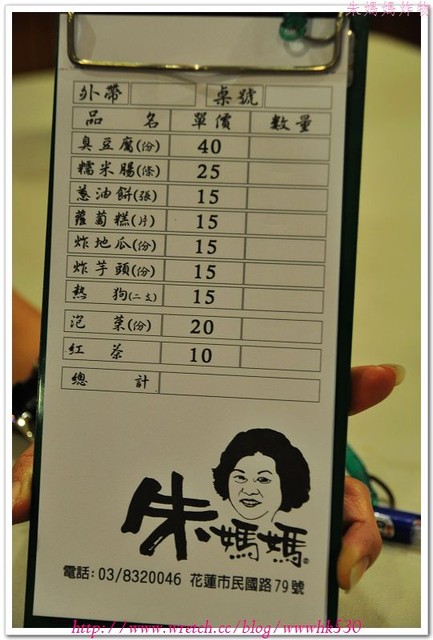 朱媽媽炸物
外帶 桌號
品名 單價 數量
臭豆腐(份) 40
糯米腸(條) 25
蔥油餅(張) 15
蘿蔔糕(片) 15
炸地瓜(份) 15
炸芋頭(份) 15
熱狗(二支) 15
泡菜(份) 20
紅茶 10
總計
朱媽媽®
電話:03/8320046 花蓮市民國路79號
http://www.wretch.cc/blog/wwwhk530